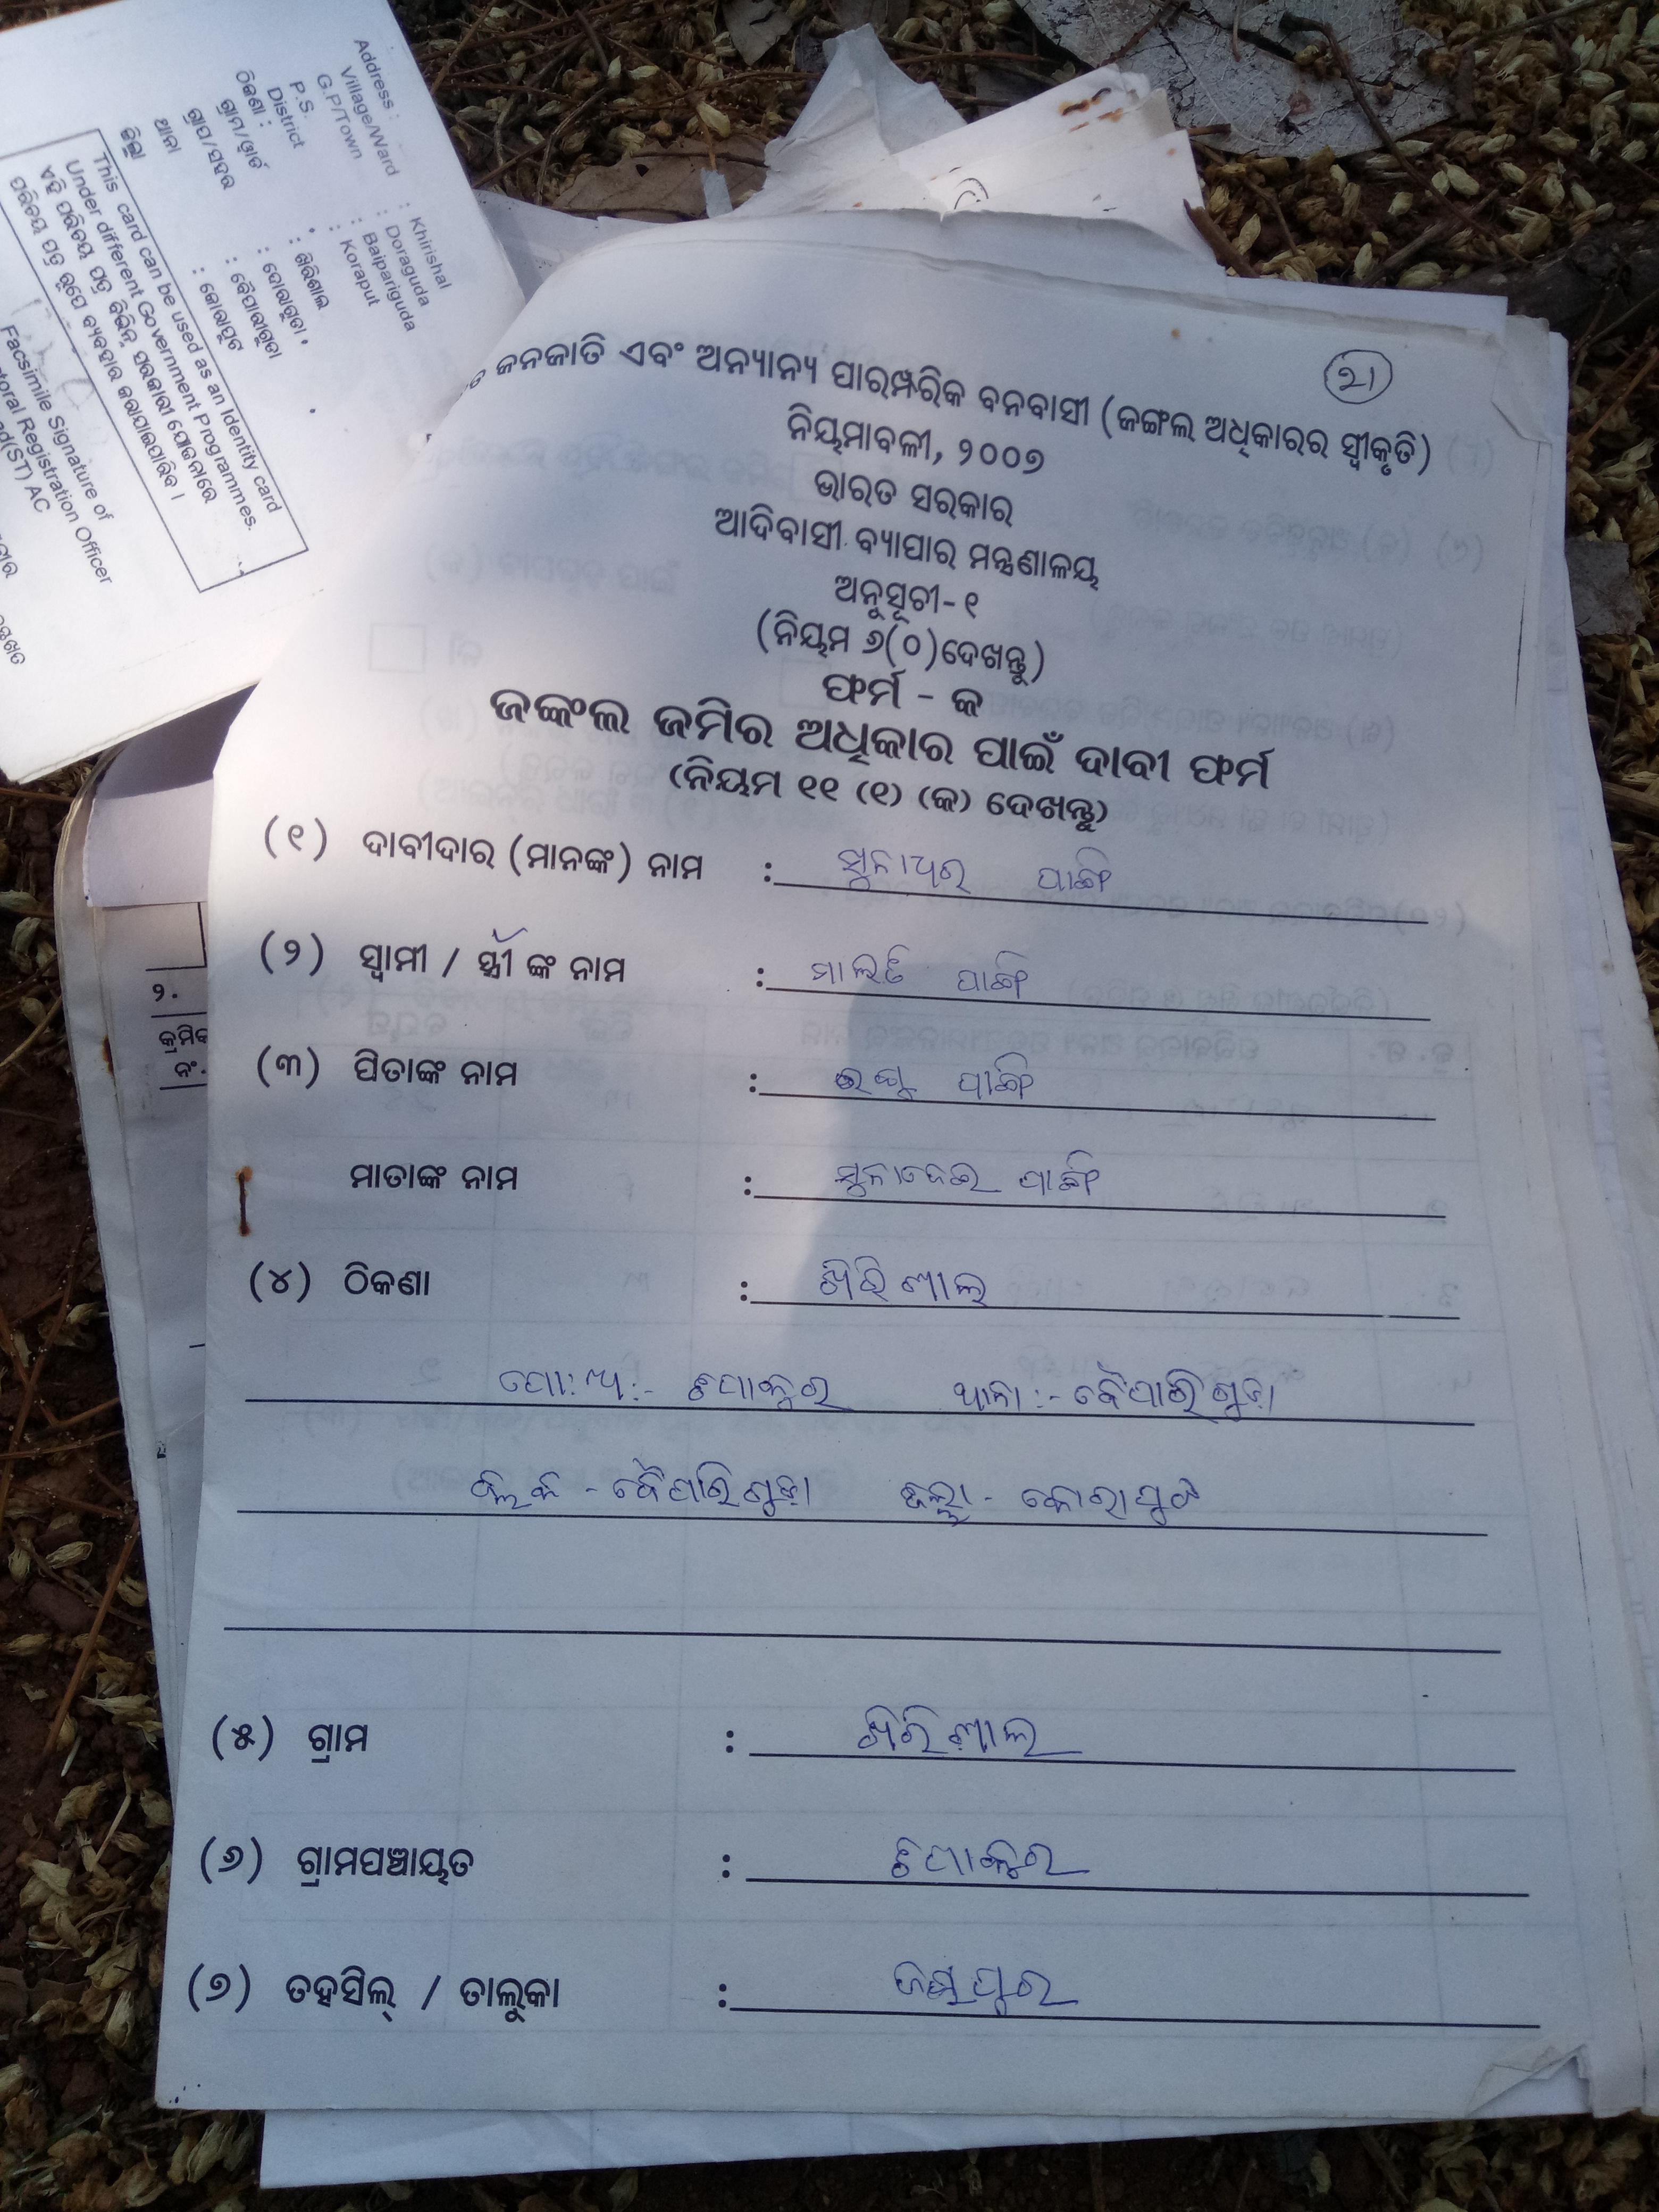 Address :
Village/Ward : Khirishal
G.P/Town : Doraguda
P.S. : Baipariguda
District : Koraput
ଠିକଣା :
ଗ୍ରାମ/ୱାର୍ଡ : ଖିରିଶାଲ
ଗ୍ରାପ/ସହର : ଦୋରାଗୁଡା
ଥାନା : ବୈପାରୀଗୁଡା
ଜିଲ୍ଲା : କୋରାପୁଟ
This card can be used as an Identity card
Under different Government Programmes.
ଏହି ପରିଚୟ ପତ୍ର ବିଭିନ୍ନ ସରକାରୀ ଯୋଜନାରେ
ପରିଚୟ ପତ୍ର ରୂପେ ବ୍ୟବହାର କରାଯାଇପାରିବ ।
Facsimile Signature of
toral Registration Officer
(ST) AC
୨୧
ଜନଜାତି ଏବଂ ଅନ୍ୟାନ୍ୟ ପାରମ୍ପରିକ ବନବାସୀ (ଜଙ୍ଗଲ ଅଧିକାରର ସ୍ୱୀକୃତି)
ନିୟମାବଳୀ, ୨୦୦୭
ଭାରତ ସରକାର
ଆଦିବାସୀ ବ୍ୟାପାର ମନ୍ତ୍ରଣାଳୟ
ଅନୁସୂଚୀ-୧
(ନିୟମ ୬(୦)ଦେଖନ୍ତୁ)
ଫର୍ମ - କ
ଜଙ୍ଗଲ ଜମିର ଅଧିକାର ପାଇଁ ଦାବୀ ଫର୍ମ
(ନିୟମ ୧୧ (୧) (କ) ଦେଖନ୍ତୁ)
(୧) ଦାବୀଦାର (ମାନଙ୍କ) ନାମ : ସୁନାଧର ପାଙ୍ଗି
(୨) ସ୍ୱାମୀ / ସ୍ତ୍ରୀ ଙ୍କ ନାମ : ମାଲତି ପାଙ୍ଗି
(୩) ପିତାଙ୍କ ନାମ : ପାଙ୍ଗି
ମାତାଙ୍କ ନାମ : ସୁନାଦେଇ ପାଙ୍ଗି
(୪) ଠିକଣା : ଖିରିଶାଲ
ପୋ:ଅ:- ଥାନା:- ବୈପାରିଗୁଡ଼ା
ବ୍ଲକ - ବୈପାରିଗୁଡ଼ା ଜିଲ୍ଲା - କୋରାପୁଟ
(୫) ଗ୍ରାମ : ଖିରିଶାଲ
(୬) ଗ୍ରାମପଞ୍ଚାୟତ :
(୭) ତହସିଲ୍ / ତାଲୁକା : ଜୟପୁର
୨.
କ୍ରମିକ
ନଂ.